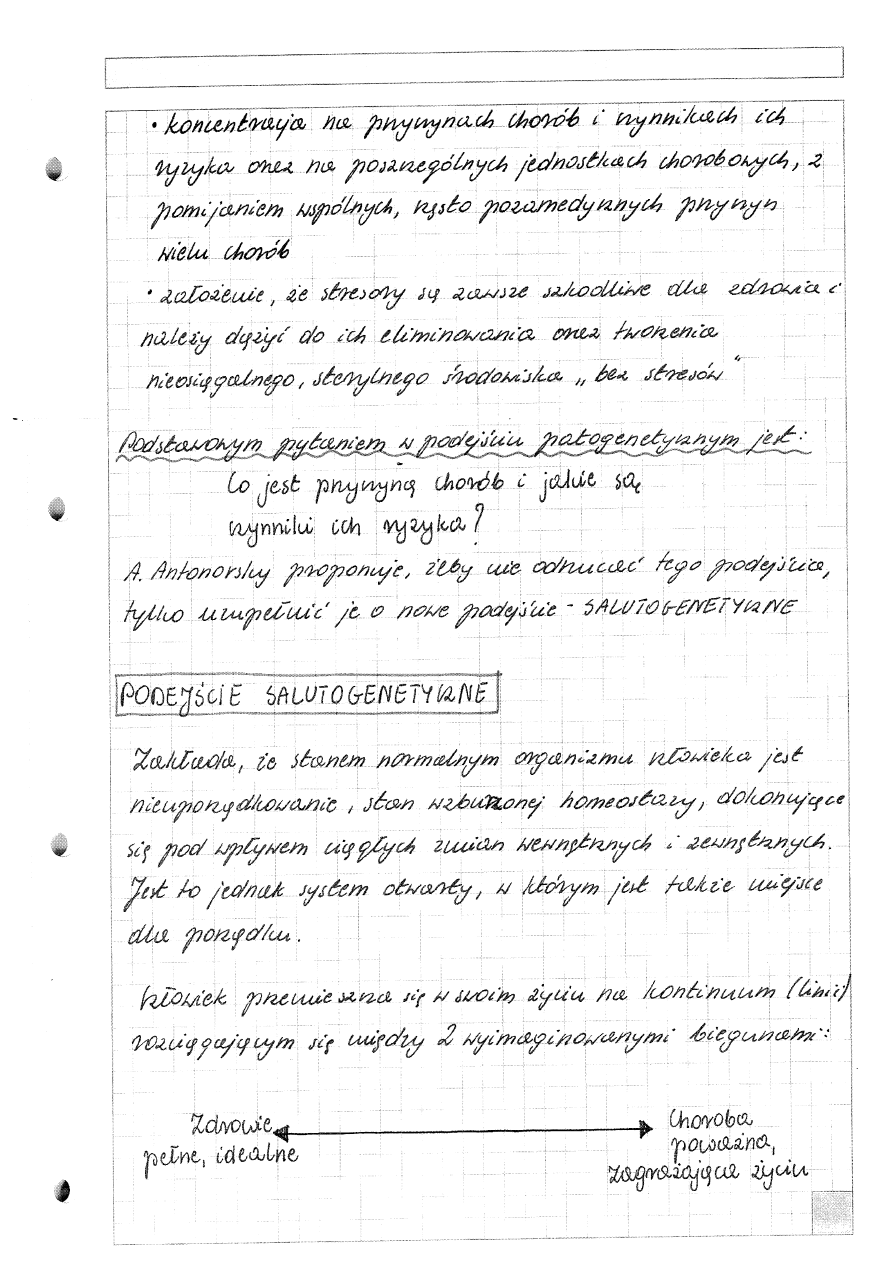 • koncentracja na przyczynach chorób i czynnikach ich
ryzyka oraz na poszczególnych jednostkach chorobowych, z
pomijaniem wspólnych, często pozamedycznych przyczyn
wielu chorób
• założenie, że stresory są zawsze szkodliwe dla zdrowia i
należy dążyć do ich eliminowania oraz tworzenia
nieosiągalnego, sterylnego środowiska „bez stresów"
Podstawowym pytaniem w podejściu patogenetycznym jest:
Co jest przyczyną chorób i jakie są
czynniki ich ryzyka?
A. Antonovsky proponuje, żeby nie odrzucać tego podejścia,
tylko uzupełnić je o nowe podejście - SALUTOGENETYCZNE
PODEJŚCIE SALUTOGENETYCZNE
Zakłada, że stanem normalnym organizmu człowieka jest
nieuporządkowanie, stan wzburzonej homeostazy, dokonujące
się pod wpływem ciągłych zmian wewnętrznych i zewnętrznych.
Jest to jednak system otwarty, w którym jest także miejsce
dla porządku.
Człowiek przemieszcza się w swoim życiu na kontinuum (linii)
rozciągającym się między 2 wyimaginowanymi biegunami:
Zdrowie
pełne, idealne
Choroba
poważna,
zagrażająca życiu